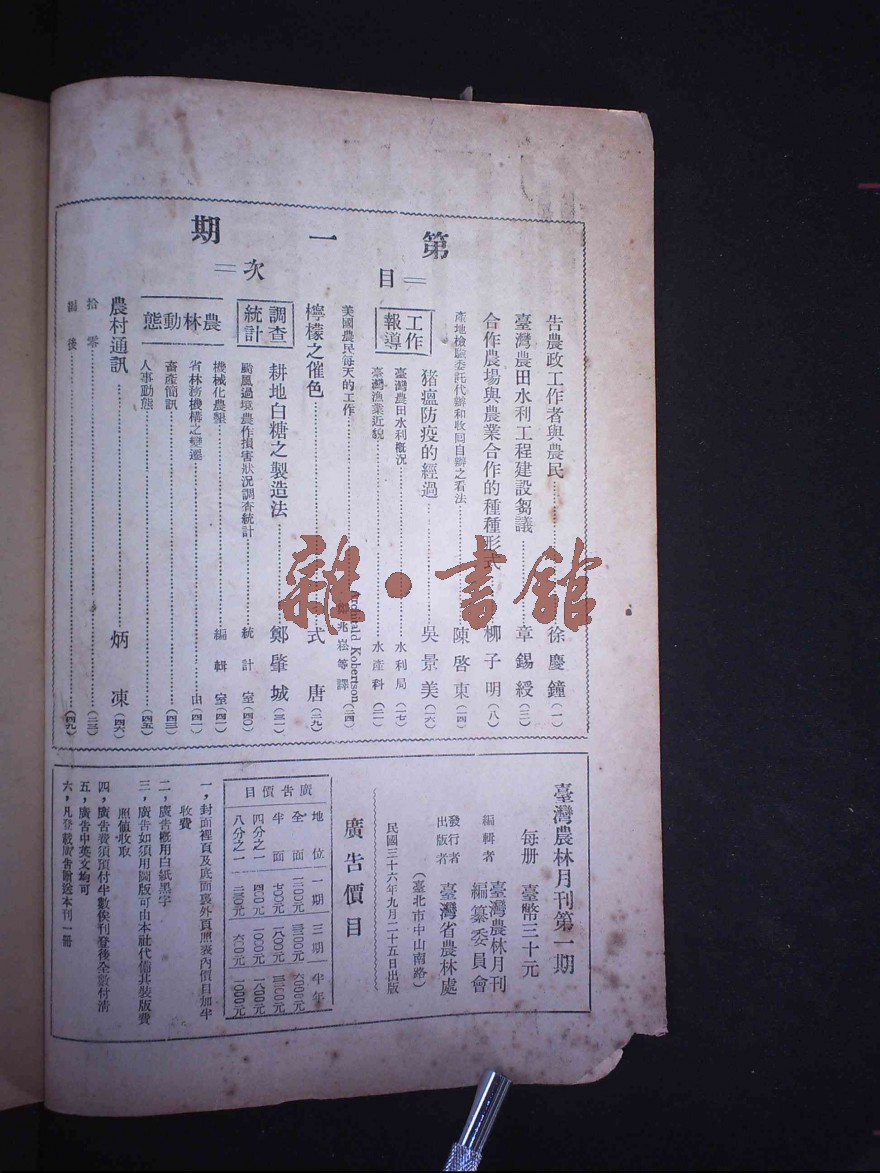 第一期
＝目次＝
告農政工作者與農民………徐慶鐘（一）
臺灣農田水利工程建設芻議………章錫綬（三）
合作農場與農業合作的種種形式………柳子明（八）
產地檢驗委託代辦和收回自辦之看法………陳啓東（一四）
猪瘟防疫的經過………吳景美（一六）
工作報導
臺灣農田水利概況………水利局（一七）
臺灣漁業近貌………水產科（二一）
美國農民每天的工作………Archibald Kobertson 兆崧等譯（二四）
檸檬之催色………式唐（二九）
耕地白糖之製造法………鄭肇城（三一）
調查統計
颱風過境農作損害狀況調查統計………統計室（四〇）
農林動態
機械化農墾………編輯室（四一）
省林務機構之變遷………由（四一）
畜產簡訊………（四三）
人事動態………（四五）
農村通訊………炳凍（四六）
拾零………（二三）
編後………（四九）
雜・書館
臺灣農林月刊第一期
每册 臺幣三十元
編輯者 臺灣農林月刊編纂委員會
發行者
出版者 臺灣省農林處
（臺北市中山南路）
民國三十六年九月二十五日出版
廣告價目
廣告價目
地位 一期 三期 半年
全面
半面
四分之一
八分之一
一，封面裡頁及底面裏外頁照表內價目加半
收費
二，廣告概用白紙黑字
三，廣告如須用圖版可由本社代備其裝版費
照值收取
四，廣告費須預付半數俟刊登後全數付清
五，廣告中英文均可
六，凡登載廣告贈送本刊一冊